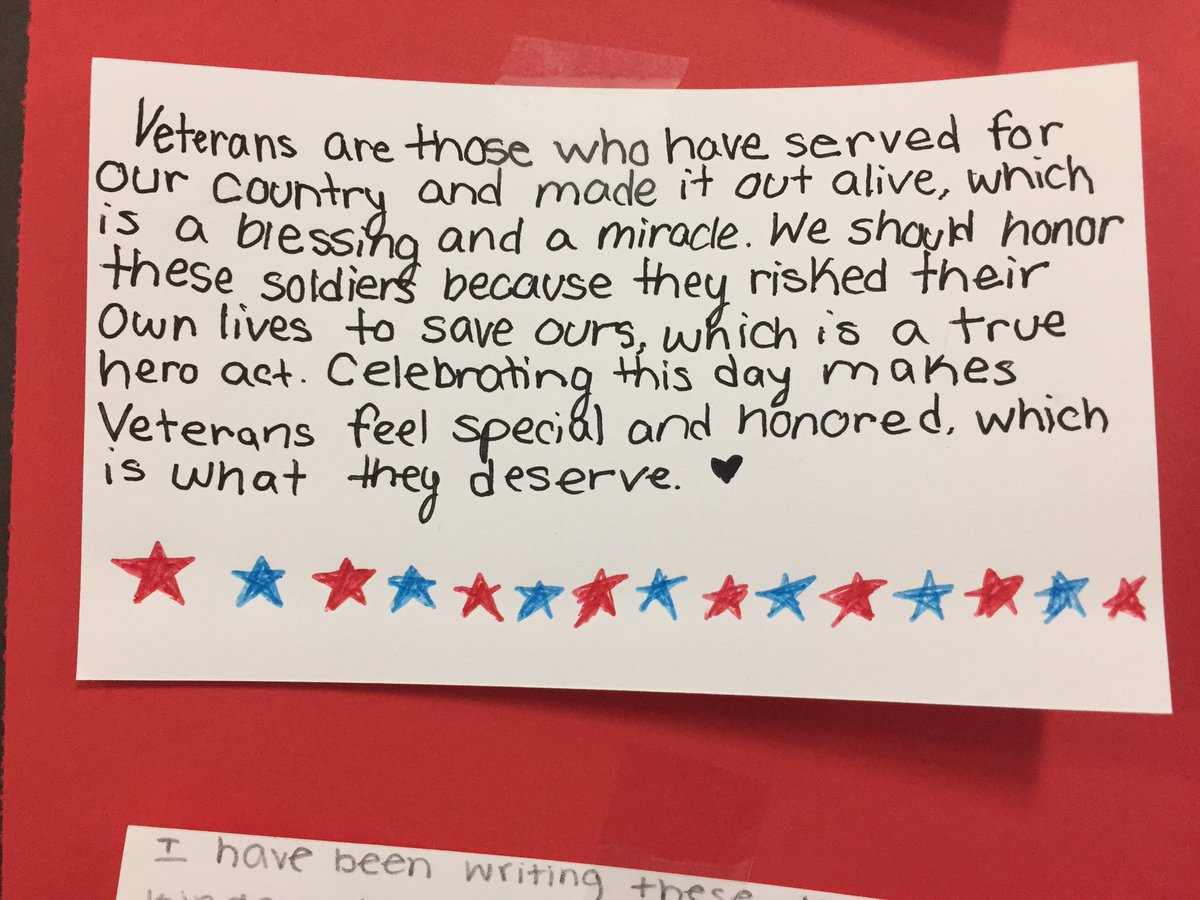 Veterans are those who have served for
our country and made it out alive, which
is a blessing and a miracle. We should honor
these soldiers because they risked their
own lives to save ours, which is a true
hero act. Celebrating this day makes
Veterans feel special and honored, which
is what they deserve. ♥
I have been writing these